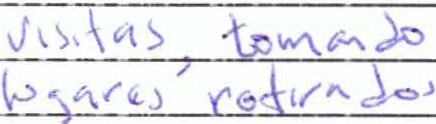 visitas, tomando
lugares rotirados